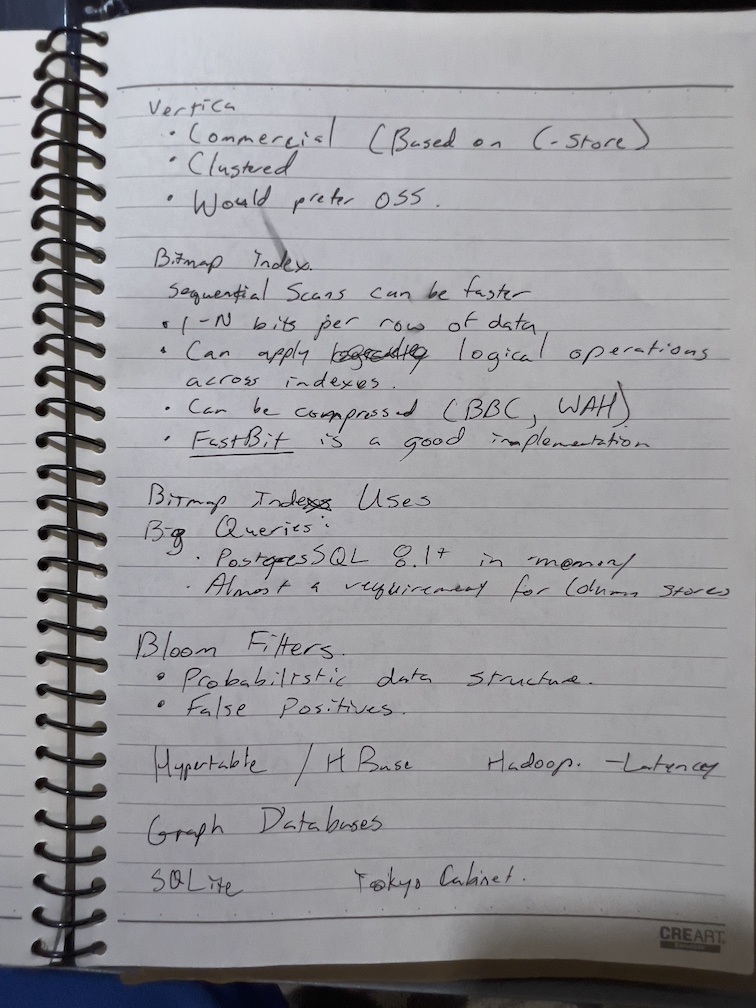 Vertica
• Commercial (Based on C-Store)
• Clustered
• Would prefer OSS.
Bitmap Index.
Sequential Scans can be faster
• 1-N bits per row of data
• Can apply logical operations
across indexes.
• Can be compressed (BBC, WAH)
• FastBit is a good implementation
Bitmap Index Uses
Big Queries:
• PostgresSQL 8.1+ in-memory
• Almost a requirement for Column stores
Bloom Filters.
• Probabilistic data structure.
• False Positives.
Hypertable / HBase Hadoop. -Latency
Graph Databases
SQLite Tokyo Cabinet.
CREART